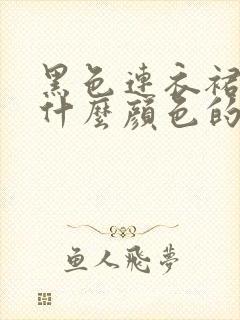 黑色連衣裙
什麼顔色的
鱼人飛夢